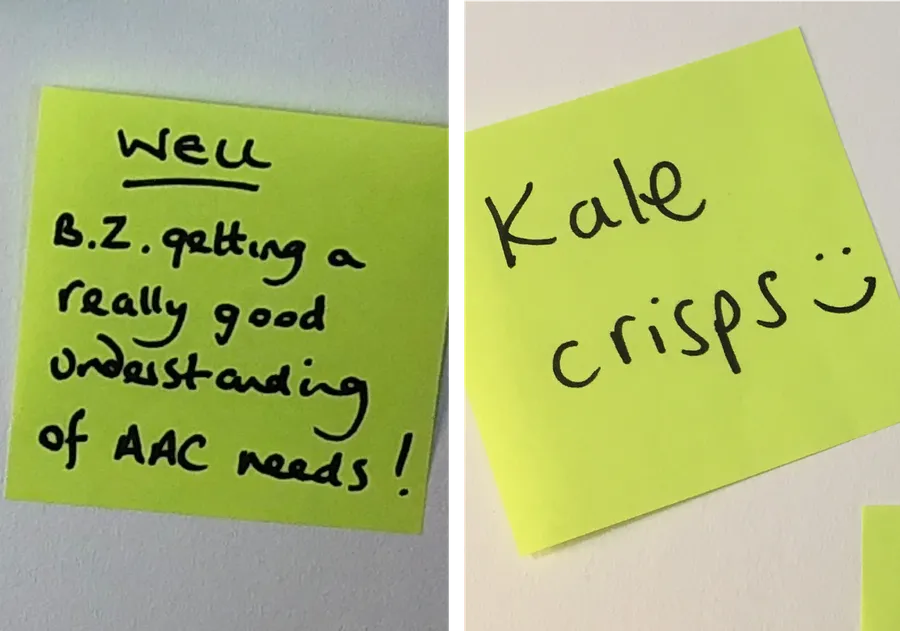 Well
B.Z. getting a
really good
understanding
of AAC needs!
Kale
crisps :)